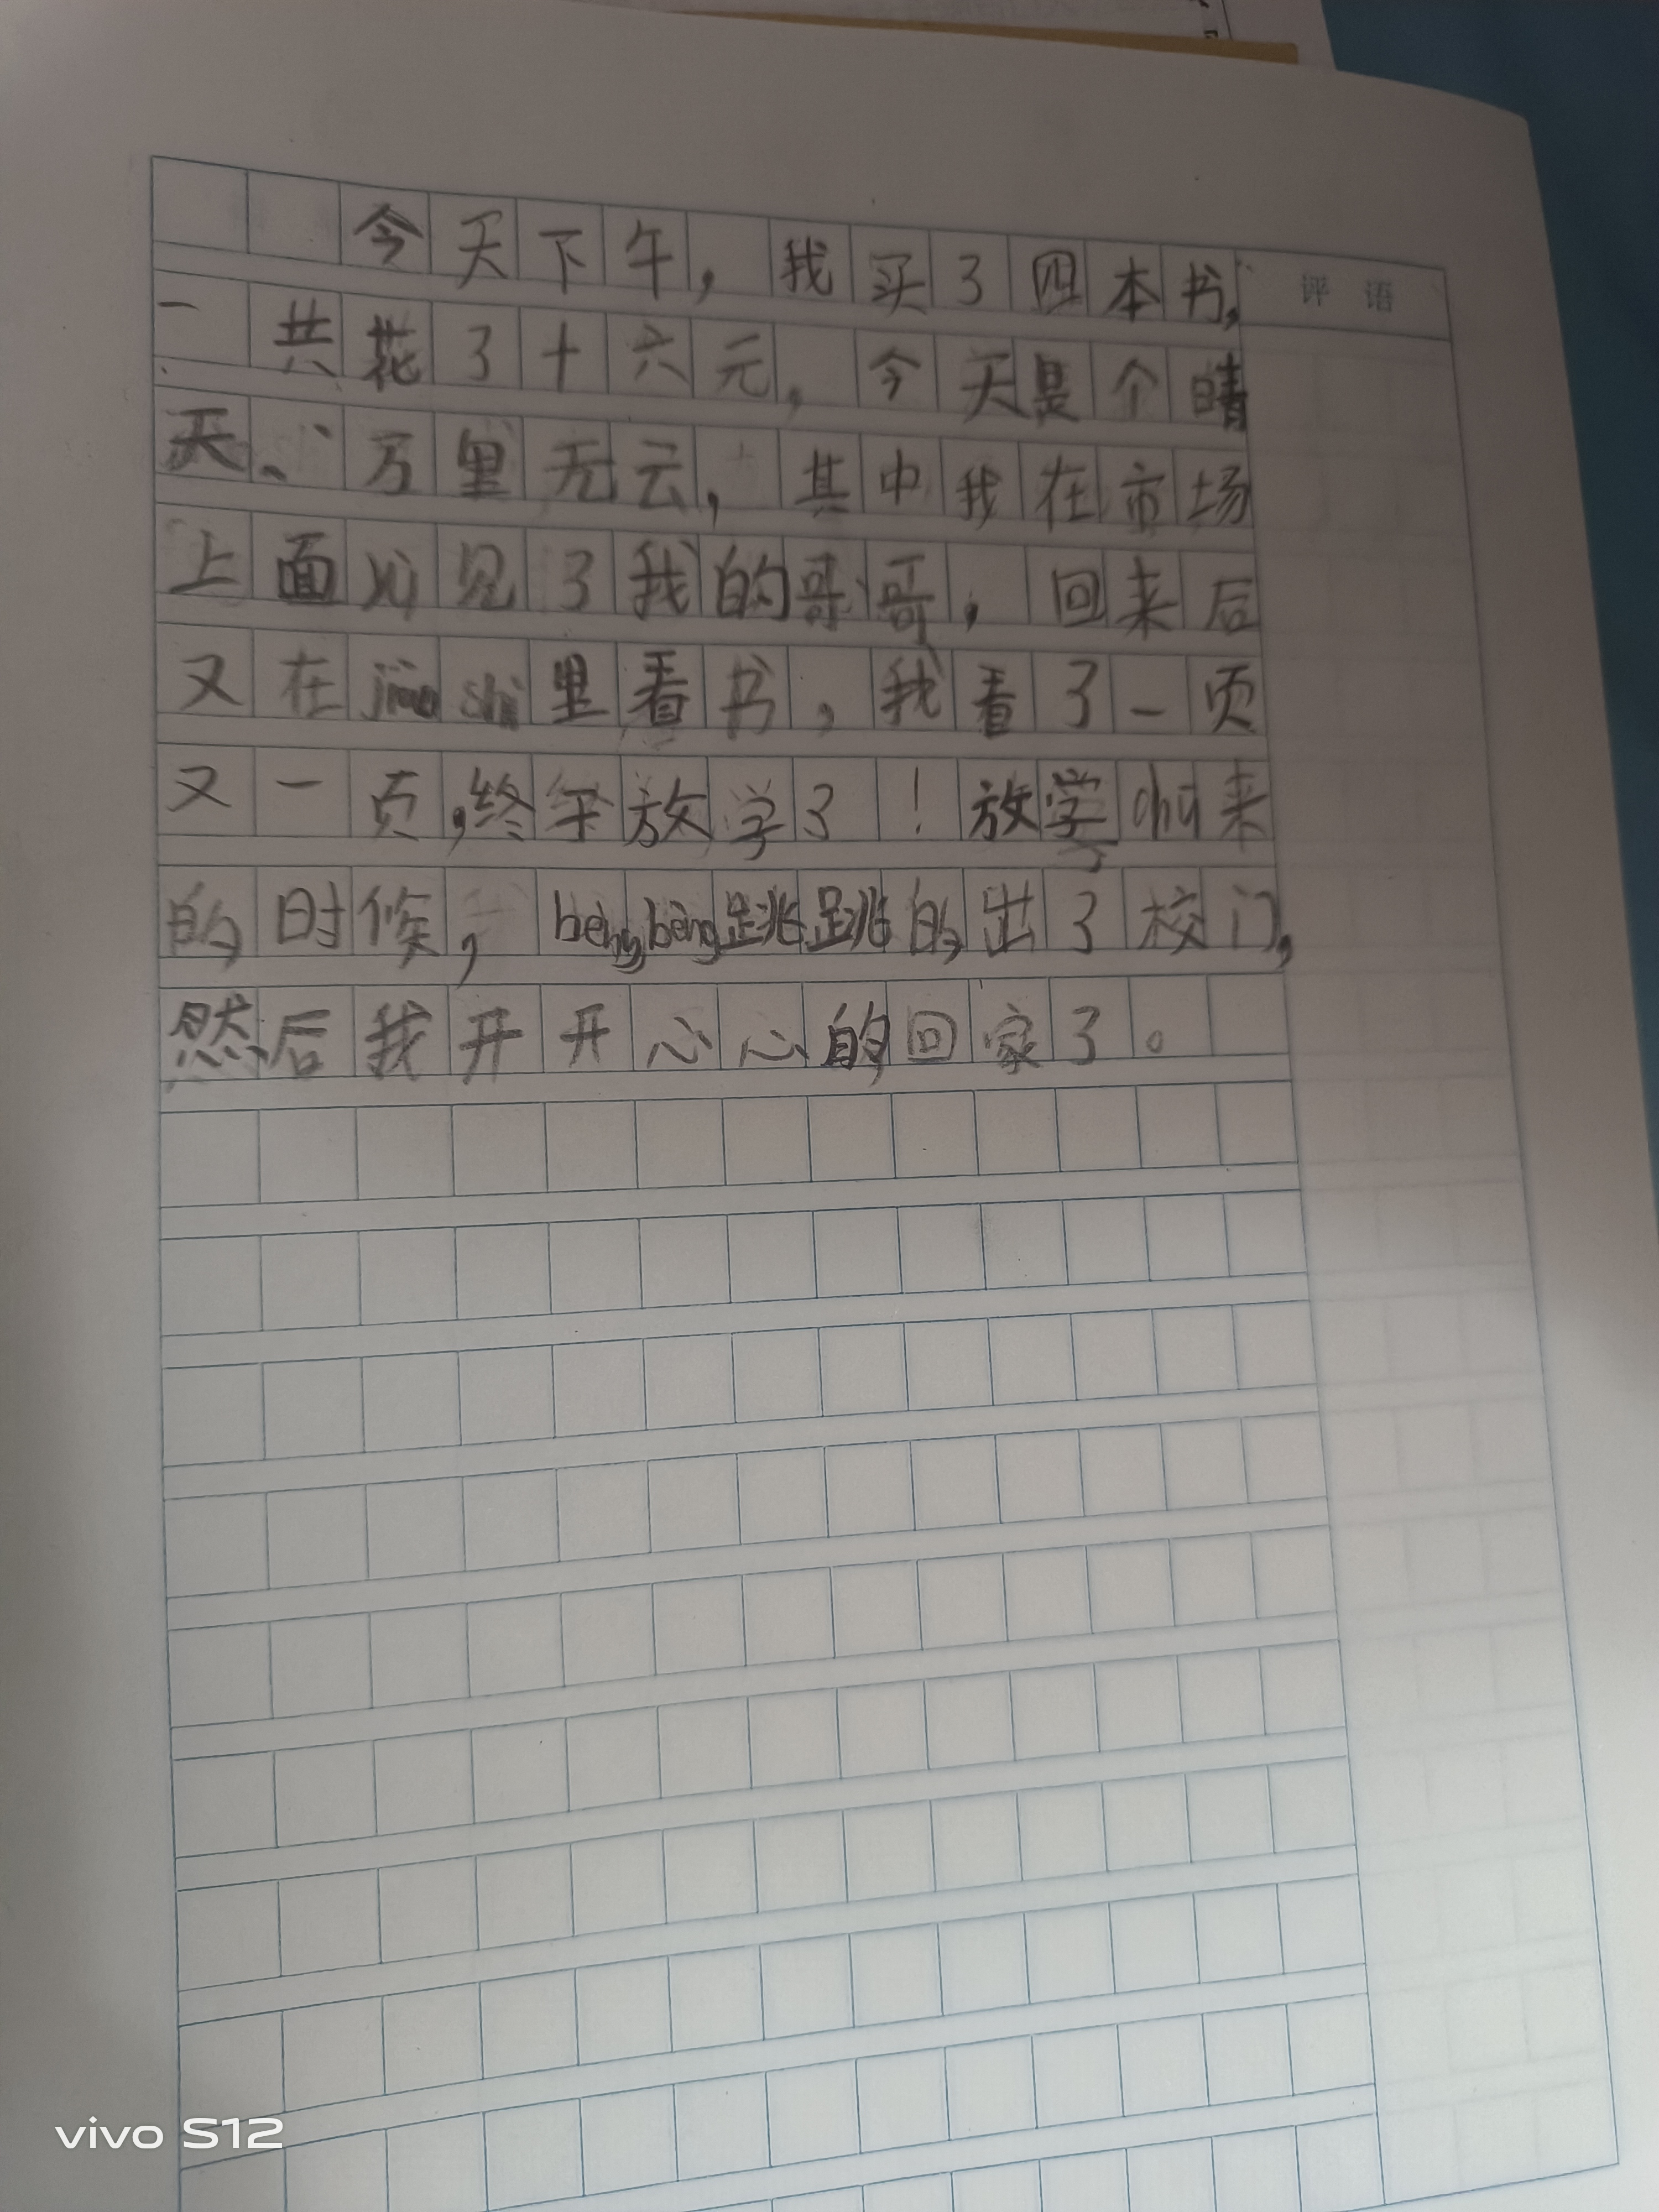 评语
今天下午，我买了四本书，
一共花了十六元，今天是个晴
天、万里无云，其中我在市场
上面 见了我的哥哥，回来后
又在jiao shi里看书，我看了一页
又一页，终于放学了！放学chū来
的时候，bèngbèng跳跳的出了校门，
然后我开开心心的回家了。
vivo S12